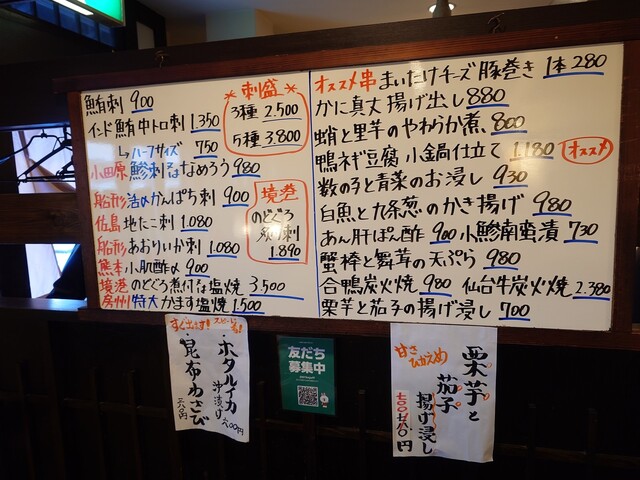 鮪刺 900
インド鮪中トロ刺 1,350
↳ハーフサイズ 750
小田原 鯵刺 なめろう 980
船形 活〆かんぱち刺 900
佐島 地たこ刺 1,080
船形 あおりいか刺 1,080
熊本 小肌酢〆 900
境港 のどぐろ煮付 塩焼 3,500
房州 特大かます塩焼 1,500
刺盛
3種 2,500
5種 3,800
境港
のどぐろ
炙り刺
1,890
オススメ串 まいたけチーズ豚巻き 1本280
かに真丈揚げ出し 880
蛸と里芋のやわらか煮 800
鴨ネギ豆腐 小鍋仕立て 1,180 オススメ
数の子と青菜のお浸し 930
白魚と九条葱のかき揚げ 980
あん肝ぽん酢 900 小鯵南蛮漬 730
蟹と舞茸の天ぷら 980
合鴨炭火焼 980 仙台牛炭火焼 2,380
栗芋と茄子の揚げ浸し 700
すぐ出ます!
・ホタルイカ
沖漬け
・昆布わさび
友だち
募集中
甘さ
ひかえめ
栗芋と
茄子
揚げ浸し
七〇〇円